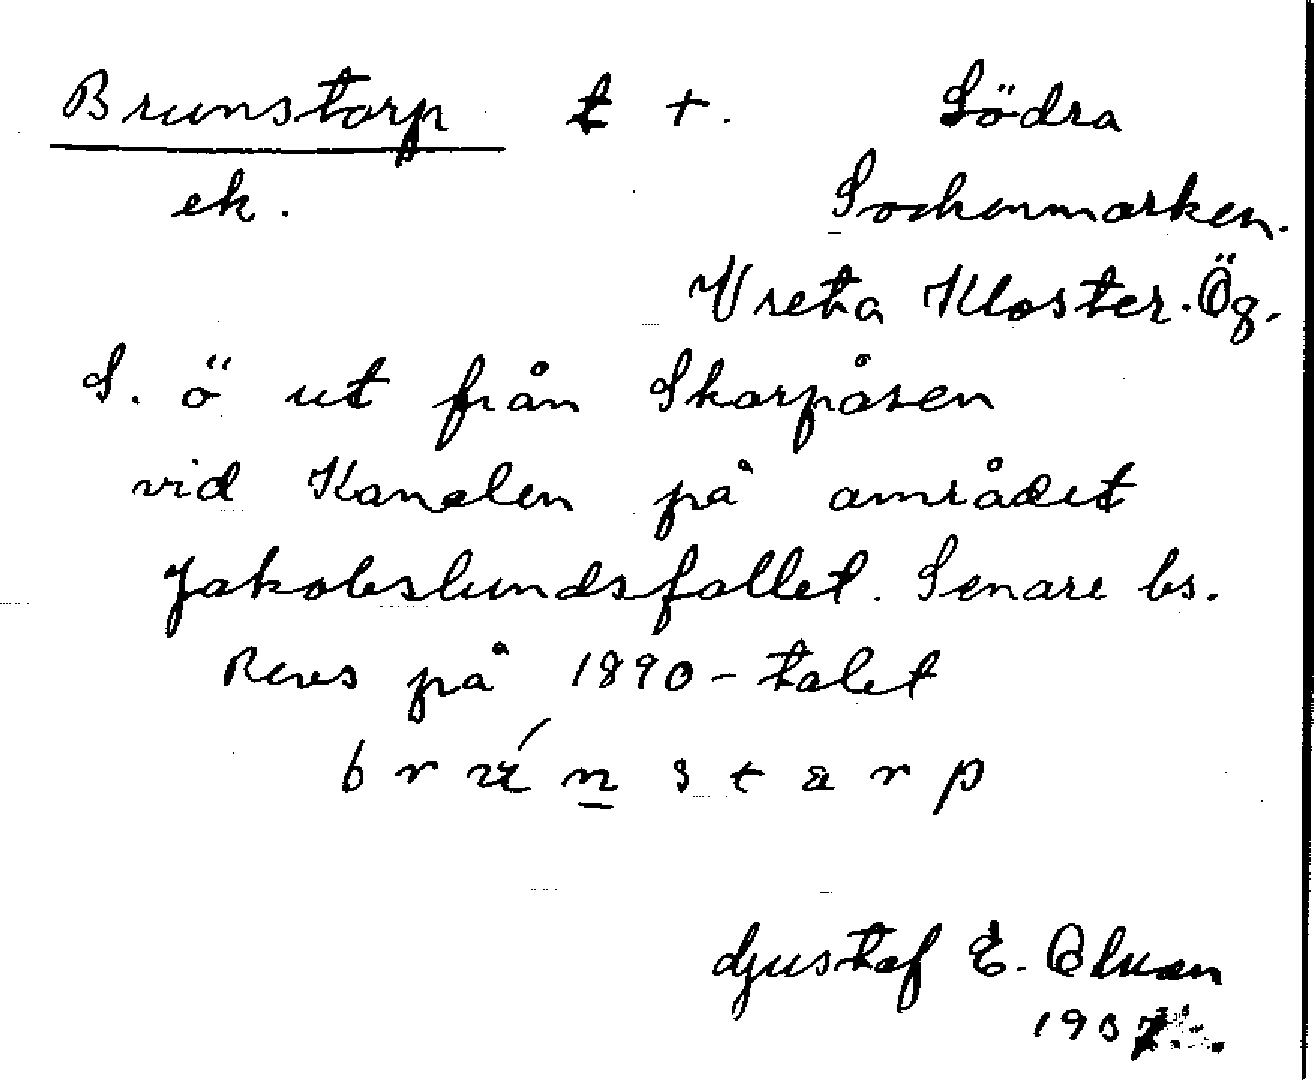 Brunstorp t +. Södra
ek. Sockenmarken.
Vreta Kloster. Ög.
S. ö ut från Skarpåsen
vid Kanalen på området
Jakobslundsfallet. Senare bs.
Revs på 1890-talet
b r ú n s t a r p
Gustaf E.